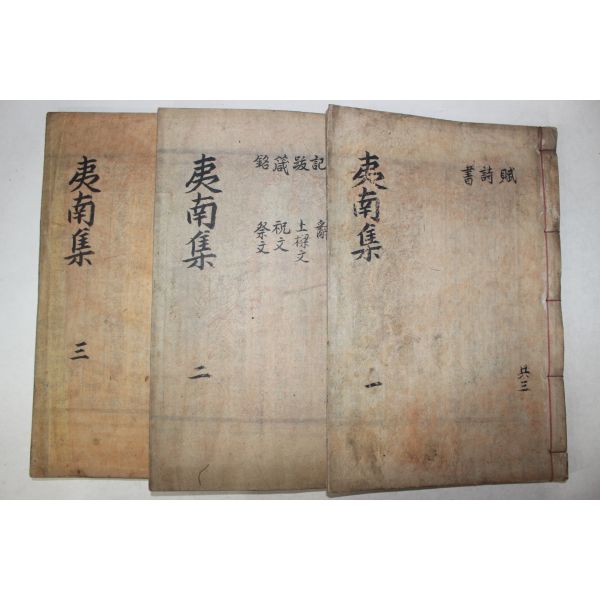 夷南集
一
賦
詩
書
共三
夷南集
二
記 辭
跋 上樑文
箴 祝文
銘 祭文
夷南集
三